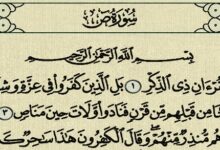 سُورَةُ صٓ
بِسْمِ ٱللَّهِ ٱلرَّحْمَٰنِ ٱلرَّحِيمِ
ـرْءَانِ ذِى ٱلذِّكْرِ ١ بَلِ ٱلَّذِينَ كَفَرُوا۟ فِى عِزَّةٍ وَشِـ
ـا مِن قَبْلِهِم مِّن قَرْنٍ فَنَادَوا۟ وَّلَاتَ حِينَ مَنَاصٍ ٣
ـم مُّنذِرٌ مِّنْهُمْ ۖ وَقَالَ ٱلْكَٰفِرُونَ هَٰذَا سَٰحِرٌ كـ